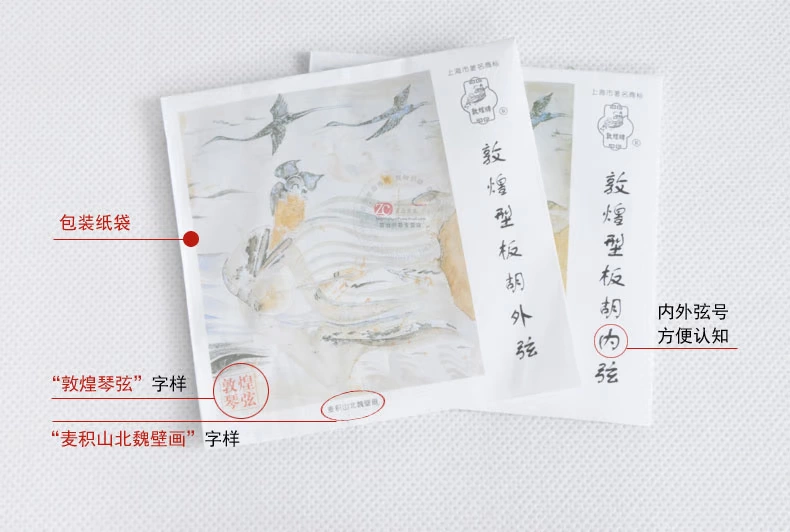 上海市著名商标
敦煌牌
敦煌型板胡外弦
上海市著名商标
敦煌牌
敦煌型板胡内弦
包装纸袋
内外弦号
方便认知
“敦煌琴弦”字样
敦煌
琴弦
麦积山北魏壁画
“麦积山北魏壁画”字样